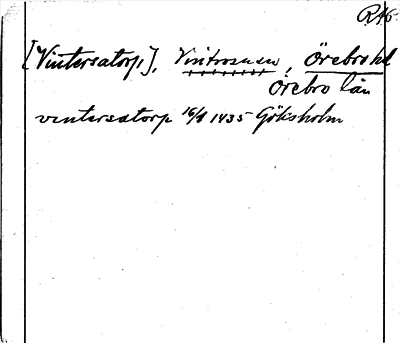 RAG.
[Vintersatorp], Vintrosa sn, Örebro hd
Örebro län
vintersatorp 16/8 1435 Göksholm